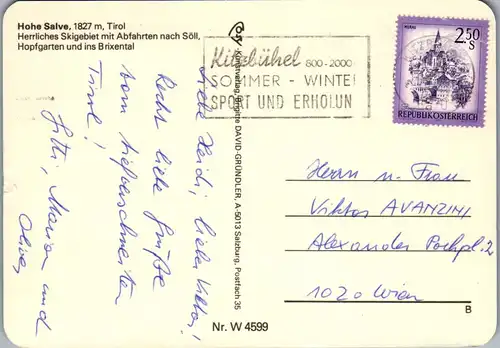 Hohe Salve, 1827 m, Tirol
Herrliches Skigebiet mit Abfahrten nach Söll,
Hopfgarten und ins Brixental
Liebe Heidi, lieber Viktor!
Recht liebe Grüße
vom tiefverschneiten
Tirol!
Marion und
Oliver
Kunstverlag, Brigitte DAVID-GRÜNDLER, A-5013 Salzburg, Postfach 35
Nr. W 4599
Kitzbühel 800-2000
SOMMER - WINTE
SPORT UND ERHOLUN
MURAU
2.50
S
REPUBLIK ÖSTERREICH
Herrn u- Frau
Viktor AVANZINI
Alexander Pochpl. 2
1020 Wien
B